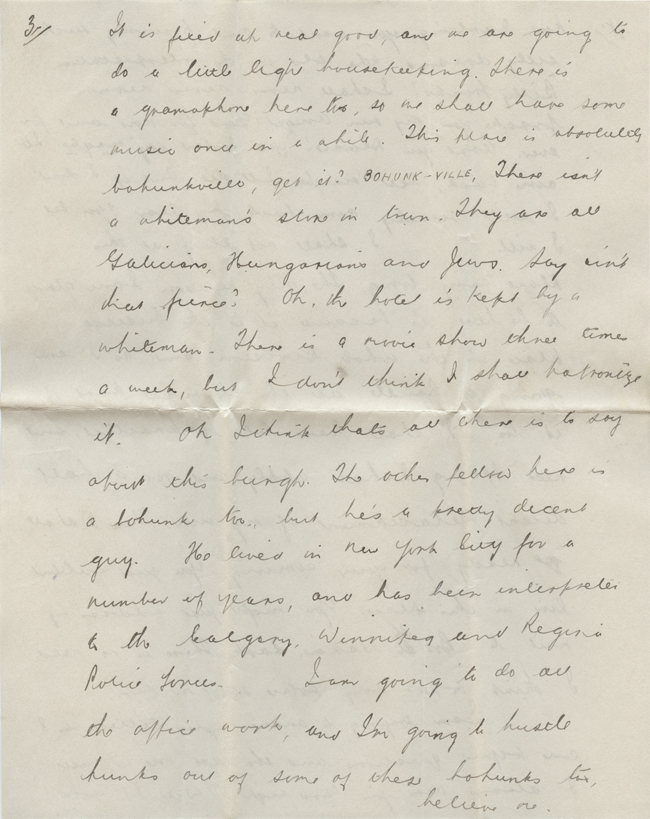 3/
It is fixed up real good, and we are going to
do a little light housekeeping. There is
a gramaphone here too, so we shall have some
music once in a while. This place is absolutely
bohunkville, get it? BOHUNK-VILLE. There isn't
a whiteman's store in town. They are all
Galicians, Hungarians and Jews. Say ain't
that fierce? Oh, the hotel is kept by a
whiteman. There is a movie show three times
a week, but I don't think I shall patronize
it. Oh I think thats all there is to say
about this burgh. The other fellow here is
a bohunk too, but he's a pretty decent
guy. He lived in New York City for a
number of years, and has been interpreter
to the Calgary, Winnipeg and Regina
Police Forces. I am going to do all
the office work, and I'm going to hustle
hunks out of some of these bohunks too,
believe me.